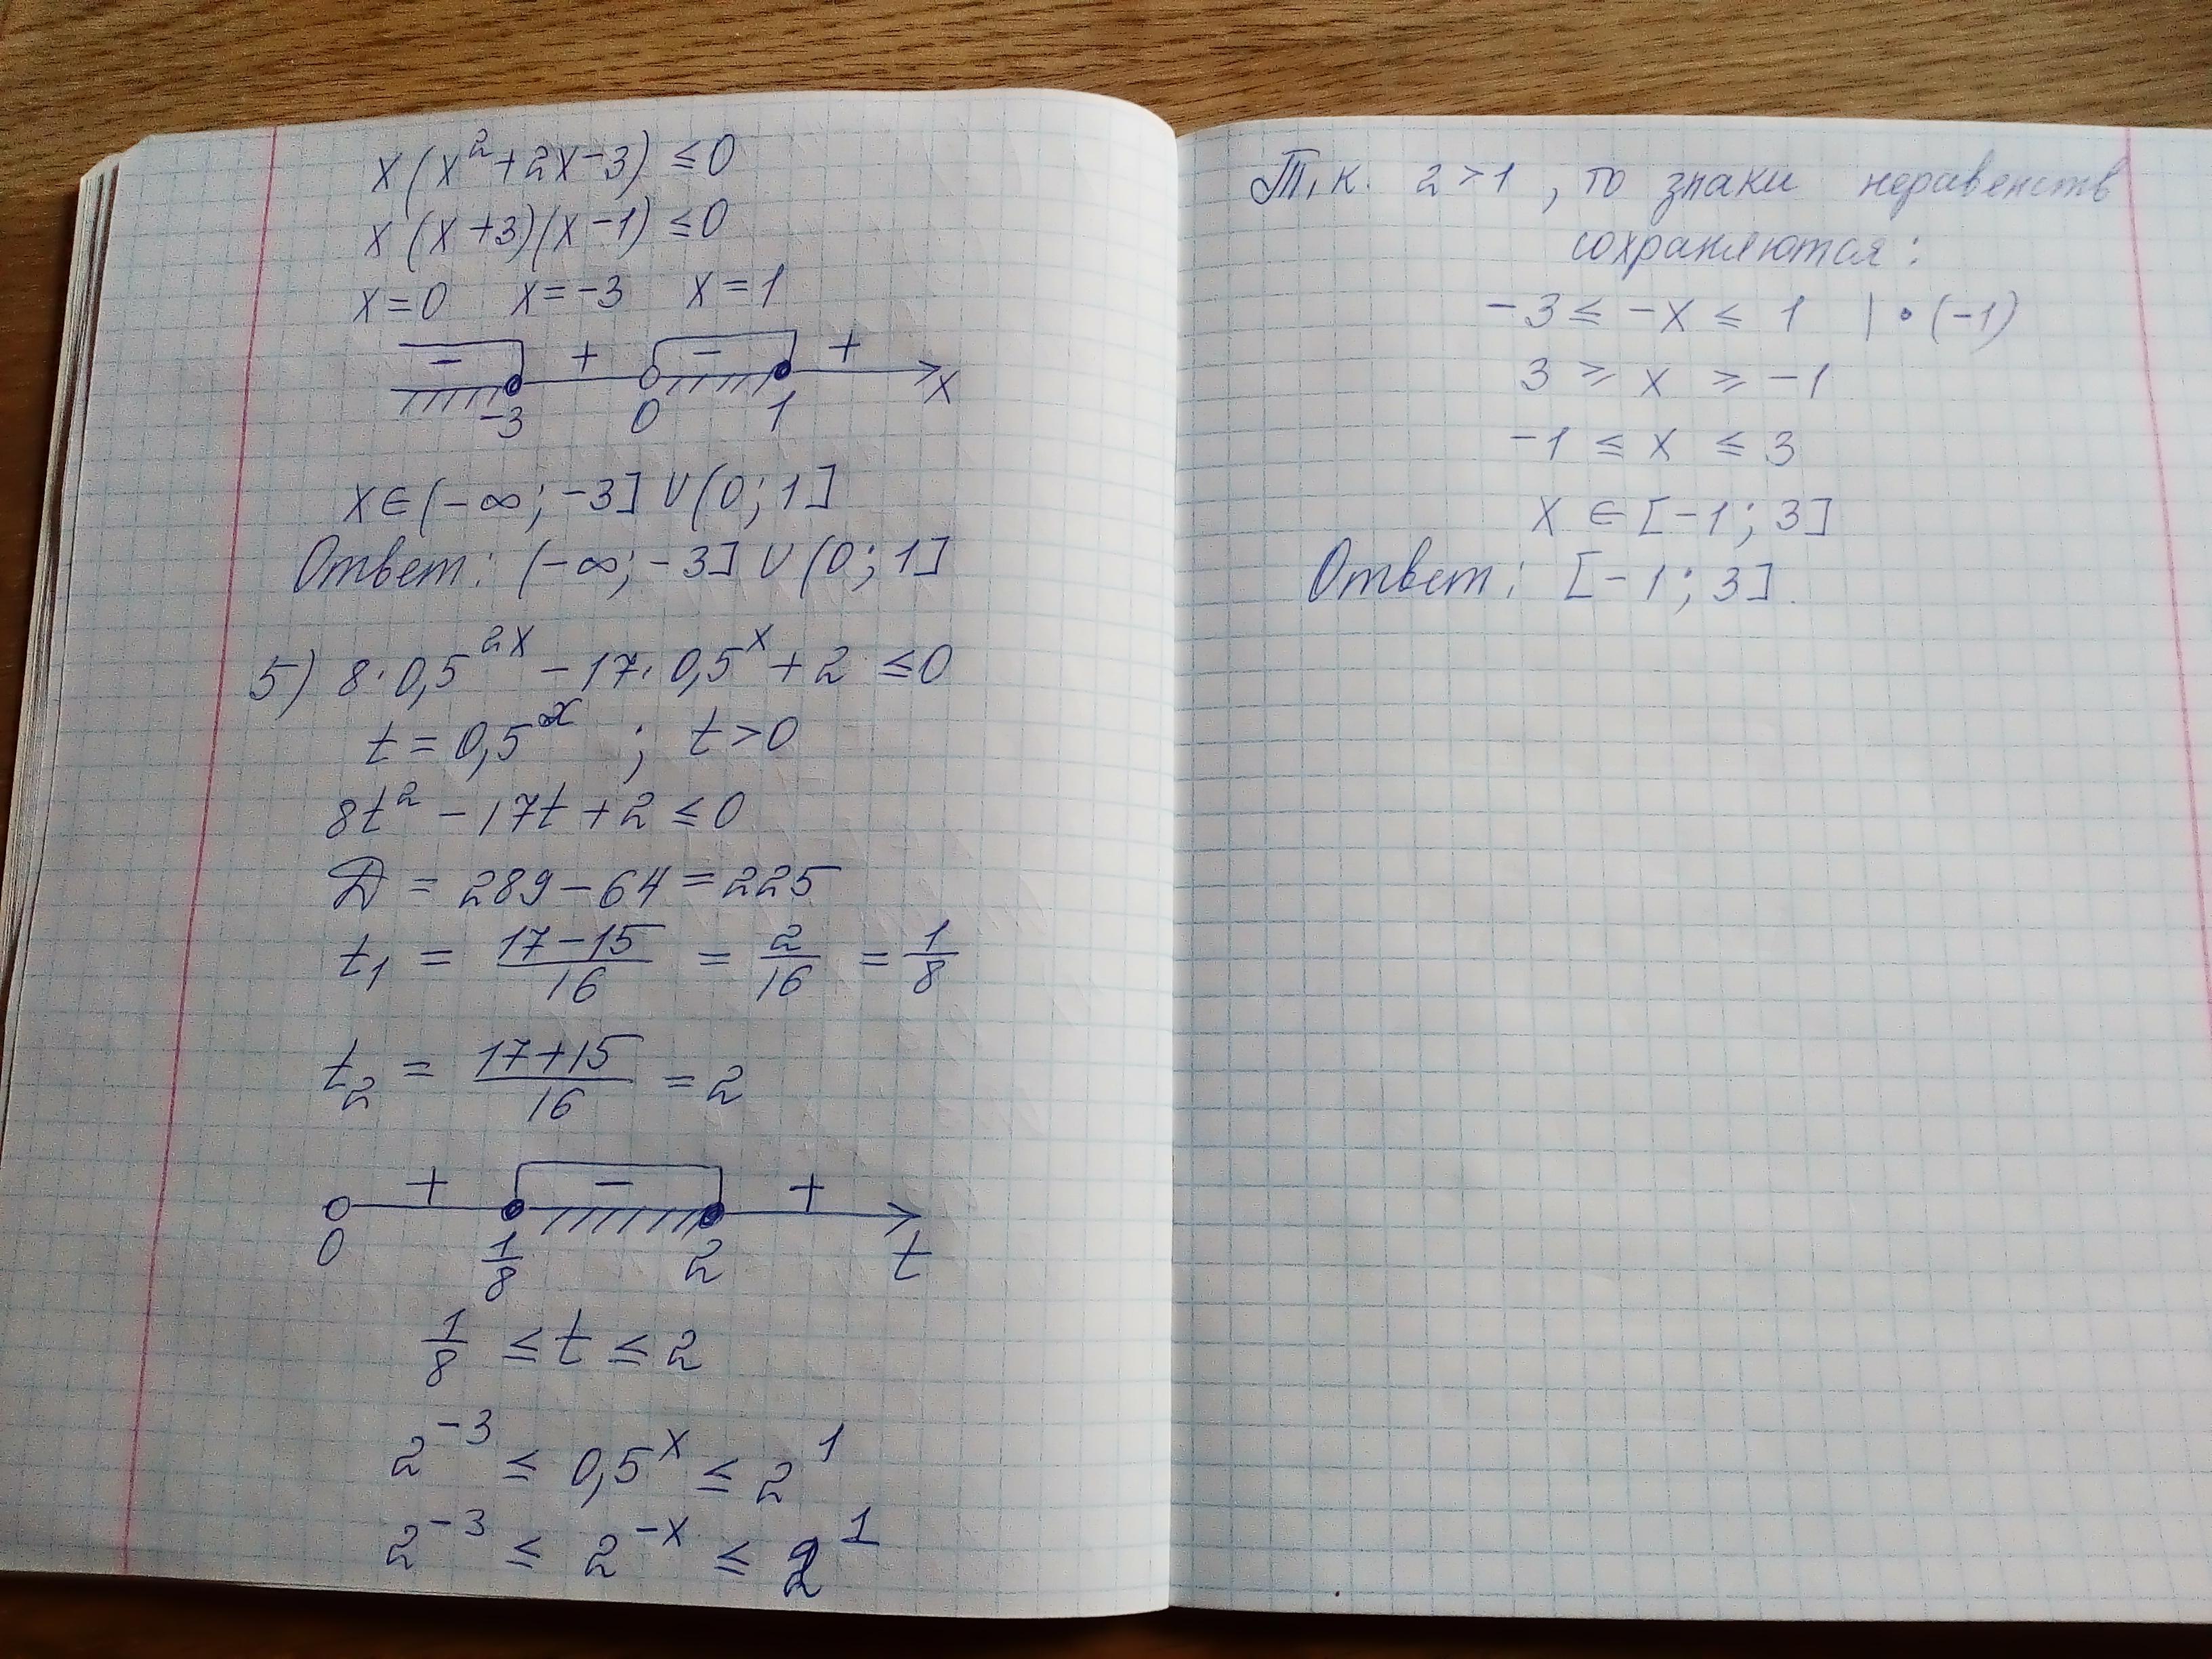 x(x²+2x-3) ≤0
x(x+3)(x-1) ≤0
x=0 x=-3 x=1
- + - +
-3 0 1 x
x∈(-∞;-3]∪(0;1]
Ответ: (-∞;-3]∪(0;1]
5) 8·0,5^{2x} - 17·0,5^x + 2 ≤0
t = 0,5^x ; t>0
8t² - 17t + 2 ≤ 0
D = 289 - 64 = 225
t₁ = \frac{17-15}{16} = \frac{2}{16} = \frac{1}{8}
t₂ = \frac{17+15}{16} = 2
+ - +
0 \frac{1}{8} 2 t
\frac{1}{8} ≤ t ≤ 2
2^{-3} ≤ 0,5^x ≤ 2^1
2^{-3} ≤ 2^{-x} ≤ 2^1
Т.к. 2>1, то знаки неравенств
сохраняются:
-3 ≤ -x ≤ 1 |·(-1)
3 ≥ x ≥ -1
-1 ≤ x ≤ 3
x ∈ [-1; 3]
Ответ: [-1; 3].